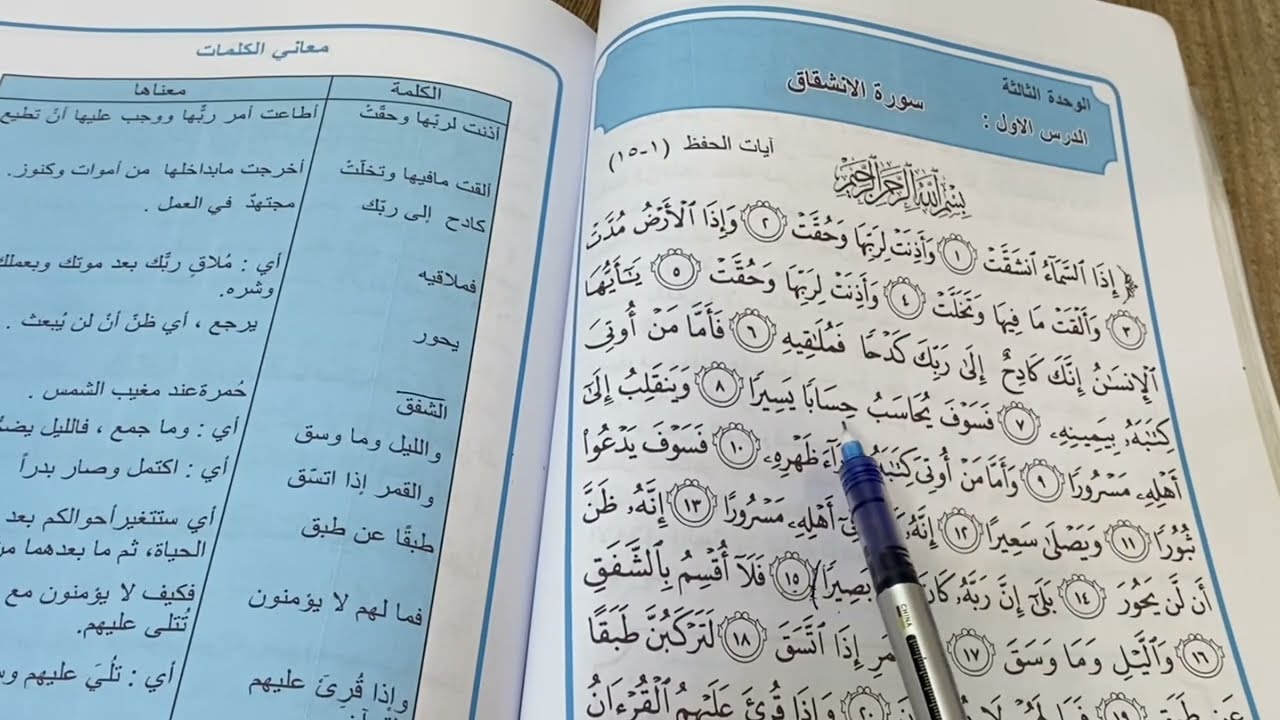 الوحدة الثالثة
الدرس الاول :
سورة الانشقاق
آيات الحفظ (١-١٥)
بِسْمِ اللَّهِ الرَّحْمَٰنِ الرَّحِيمِ
﴿ إِذَا ٱلسَّمَآءُ ٱنشَقَّتْ ١ وَأَذِنَتْ لِرَبِّهَا وَحُقَّتْ ٢ وَإِذَا ٱلْأَرْضُ مُدَّتْ
٣ وَأَلْقَتْ مَا فِيهَا وَتَخَلَّتْ ٤ وَأَذِنَتْ لِرَبِّهَا وَحُقَّتْ ٥ يَٰٓأَيُّهَا
ٱلْإِنسَٰنُ إِنَّكَ كَادِحٌ إِلَىٰ رَبِّكَ كَدْحًا فَمُلَٰقِيهِ ٦ فَأَمَّا مَنْ أُوتِىَ
كِتَٰبَهُۥ بِيَمِينِهِۦ ٧ فَسَوْفَ يُحَاسَبُ حِسَابًا يَسِيرًا ٨ وَيَنقَلِبُ إِلَىٰٓ
أَهْلِهِۦ مَسْرُورًا ٩ وَأَمَّا مَنْ أُوتِىَ كِتَٰبَهُۥ ظَهْرِهِۦ ١٠ فَسَوْفَ يَدْعُوا۟
ثُبُورًا ١١ وَيَصْلَىٰ سَعِيرًا ١٢ إِنَّهُۥ فِىٓ أَهْلِهِۦ مَسْرُورًا ١٣ إِنَّهُۥ ظَنَّ
أَن لَّن يَحُورَ ١٤ بَلَىٰٓ إِنَّ رَبَّهُۥ بَصِيرًا ١٥ فَلَآ أُقْسِمُ بِٱلشَّفَقِ
١٦ وَٱلَّيْلِ وَمَا وَسَقَ ١٧ إِذَا ٱتَّسَقَ ١٨ لَتَرْكَبُنَّ طَبَقًا
عَن طَبَقٍ ١٩ فَمَا لَهُمْ لَا ٢٠ وَإِذَا قُرِئَ عَلَيْهِمُ ٱلْقُرْءَانُ
معاني الكلمات
الكلمة معناها
أذنت لربّها وحقّتْ أطاعت أمر ربُّها ووجب عليها أنْ تطيع
ألقت مافيها وتخلّتْ أخرجت مابداخلها من أموات وكنوز.
كادح إلى ربّك مجتهدّ في العمل .
فملاقيه أي : مُلاقِ ربَّك بعد موتك وبعملك
وشره.
يحور يرجع ، أي ظنّ أنْ لن يُبعث .
الشفق حُمرة عند مغيب الشمس .
والليل وما وسق أي : وما جمع ، فالليل
والقمر إذا اتسَق أي : اكتمل وصار بدراً
طبقًا عن طبق أي ستتغير أحوالكم بعد
الحياة، ثم ما بعدهما
فما لهم لا يؤمنون فكيف لا يؤمنون مع
تُتلى عليهم.
وإذا قُرِئَ عليهم أي : تُلِيَ عليهم